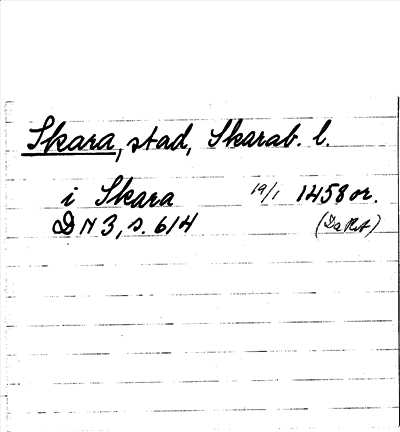 Skara, stad, Skarab. l.
i Skara 19/1 1458 or.
DN 3, s. 614 (Da RA)